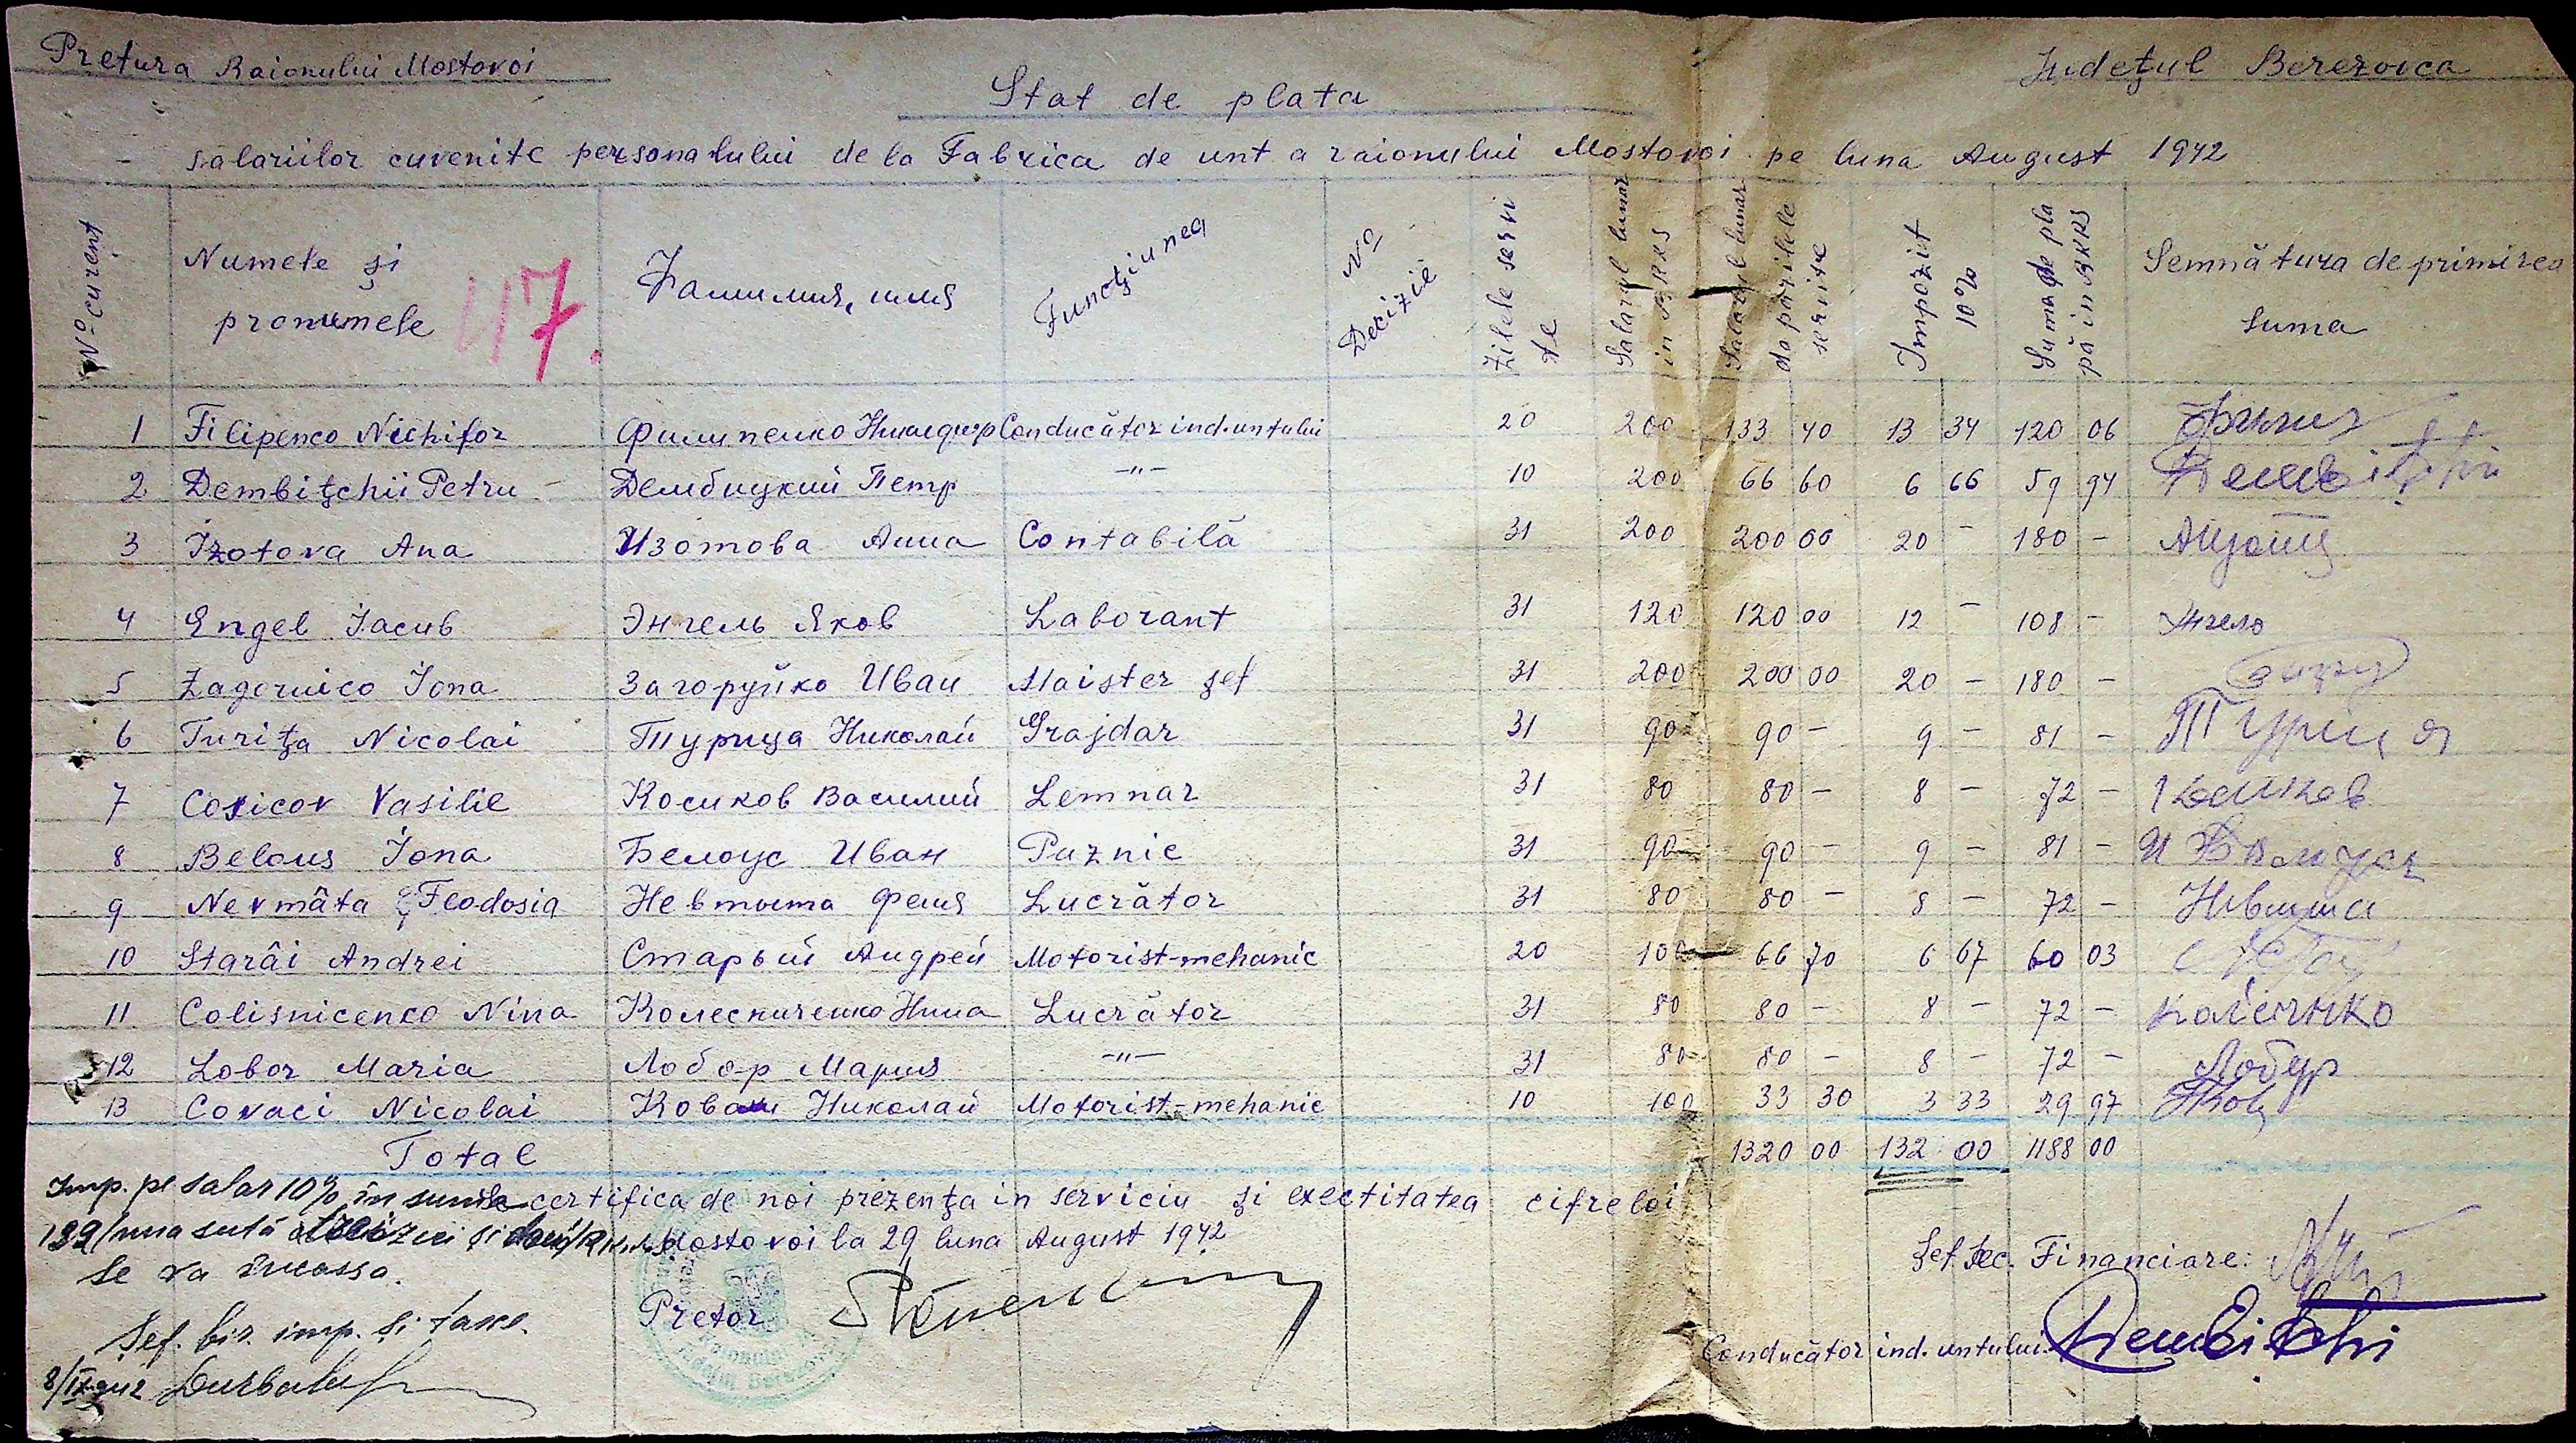 Pretura Raionului Mostovoi
Judeţul Berezovca
Stat de plata
salariilor cuvenite personalului de la Fabrica de unt a raionului Mostovoi pe luna August 1942
No curent
Numele şi pronumele
47.
Фамилия, имя
Funcţiunea
No Decizie
Zilele servite
Salarul lunar in RKKS
Salarul lunar dapă zilele servite
Impozit 10%
Suma de plapă in RKKS
Semnătura de primirea suma
1 Filipenco Nichifor Филипенко Никифор Conducător ind. untului 20 200 133 40 13 34 120 06
2 Dembiţchii Petru - Дембицкий Петр -"- 10 200 66 60 6 66 59 94
3 Izotova Ana Изотова Анна Contabilă 31 200 200 00 20 - 180 -
4 Engel Iacub Энгель Яков Laborant 31 120 120 00 12 - 108 -
5 Zagoruico Iona Загоруйко Иван Maister şef 31 200 200 00 20 - 180 -
6 Turiţa Nicolai Турица Николай Grajdar 31 90 90 - 9 - 81 - Турица
7 Cosicov Vasilie Косиков Василий Lemnar 31 80 80 - 8 - 72 -
8 Belous Iona Белоус Иван Paznic 31 90 90 - 9 - 81 -
9 Nevmâta Feodosia Невмыта Феня Lucrător 31 80 80 - 8 - 72 -
10 Starâi Andrei Старый Андрей Motorist-mehanic 20 100 66 70 6 67 60 03
11 Colisnicenco Nina Колесниченко Нина Lucrător 31 80 80 - 8 - 72 -
12 Lobor Maria Лобор Мария -"- 31 80 80 - 8 - 72 - Лобур
13 Covaci Nicolai Николай Motorist-mehanic 10 100 33 30 3 33 29 97
Total 1320 00 132 00 1188 00
Se certifica de noi prezenţa in serviciu şi exectitatea cifreloi
Mostovoi la 29 luna August 1942
Imp. pe salar 10% în suma
se va încassa.
Şef. bir. imp. şi taxe.
Pretor
Şef Sec. Financiare:
Conducător ind. untului